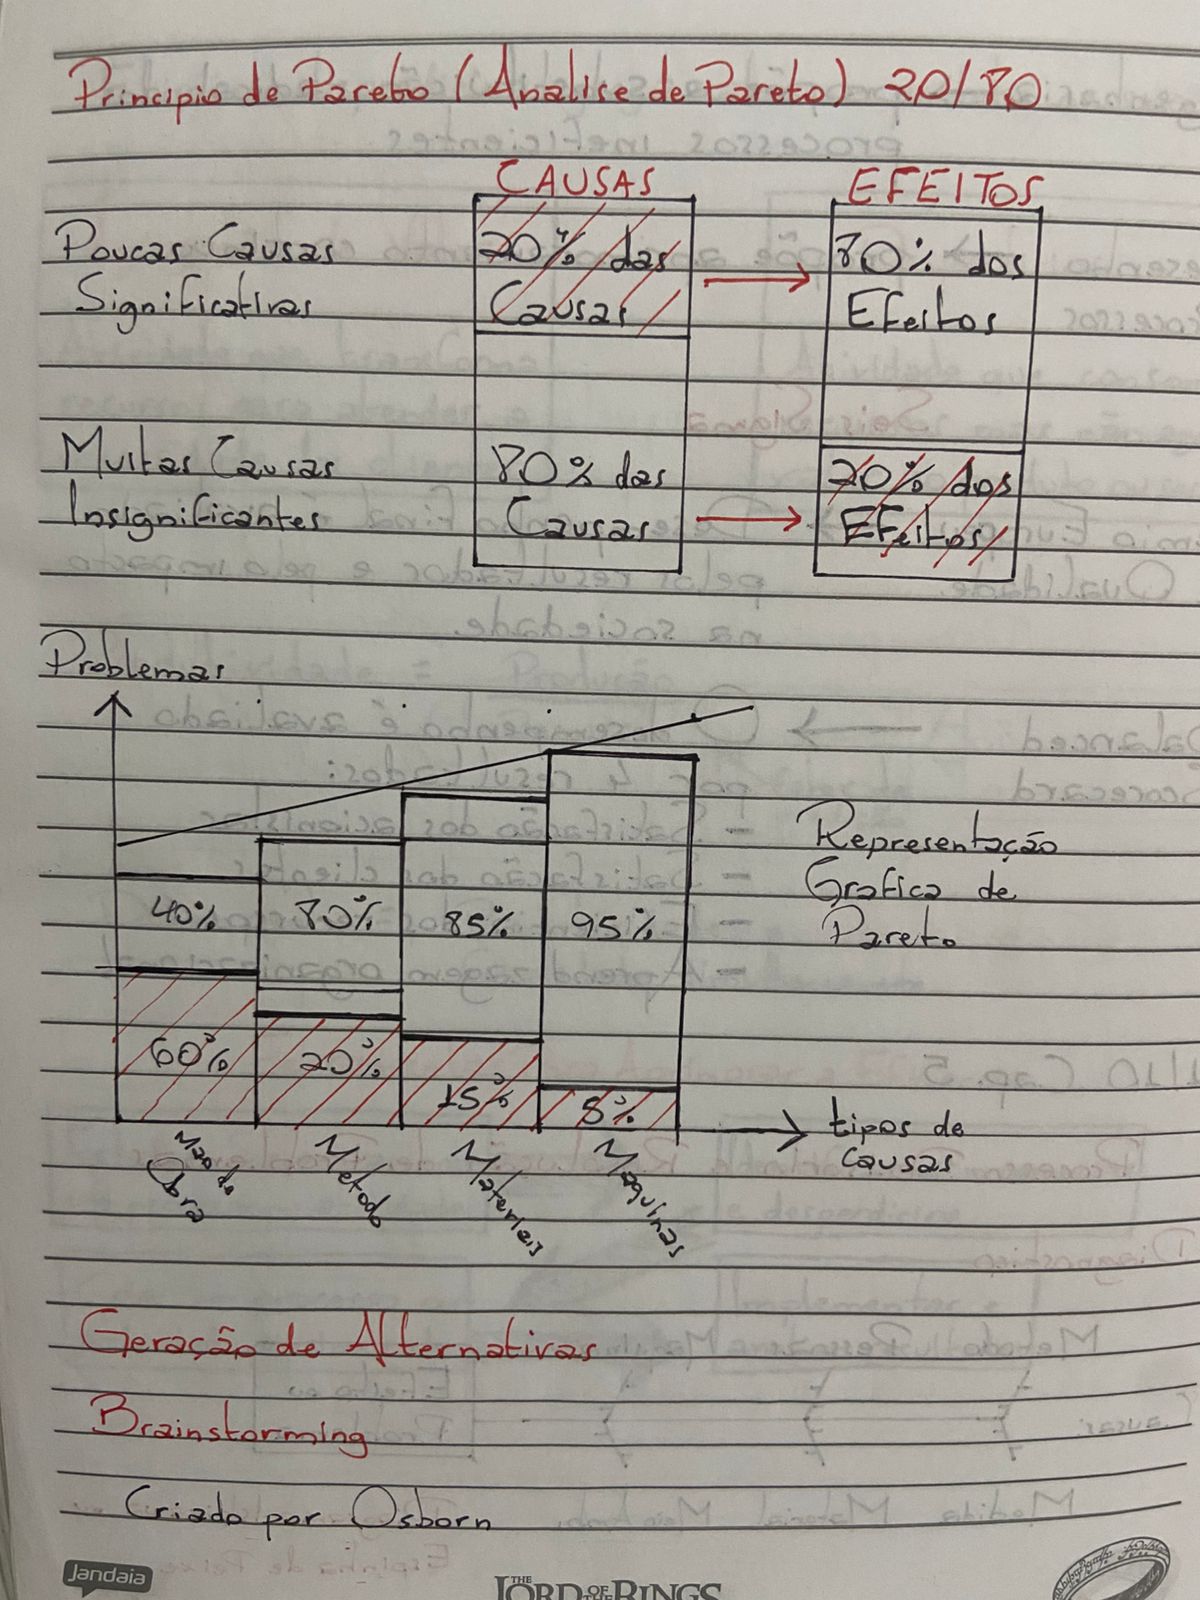 Principio de Pareto (Analise de Pareto) 20/80
CAUSAS
EFEITOS
Poucas Causas
Significativas
20% das
Causas
80% dos
Efeitos
Muitas Causas
Insignificantes
80% das
Causas
20% dos
Efeitos
Problemas
40%
80%
85%
95%
60%
20%
15%
5%
Representação
Grafica de
Pareto
Mao de
Obra
Metodo
Materiais
Maquinas
tipos de
causas
Geração de Alternativas
Brainstorming
Criado por Osborn
Jandaia
THE LORD OF THE RINGS